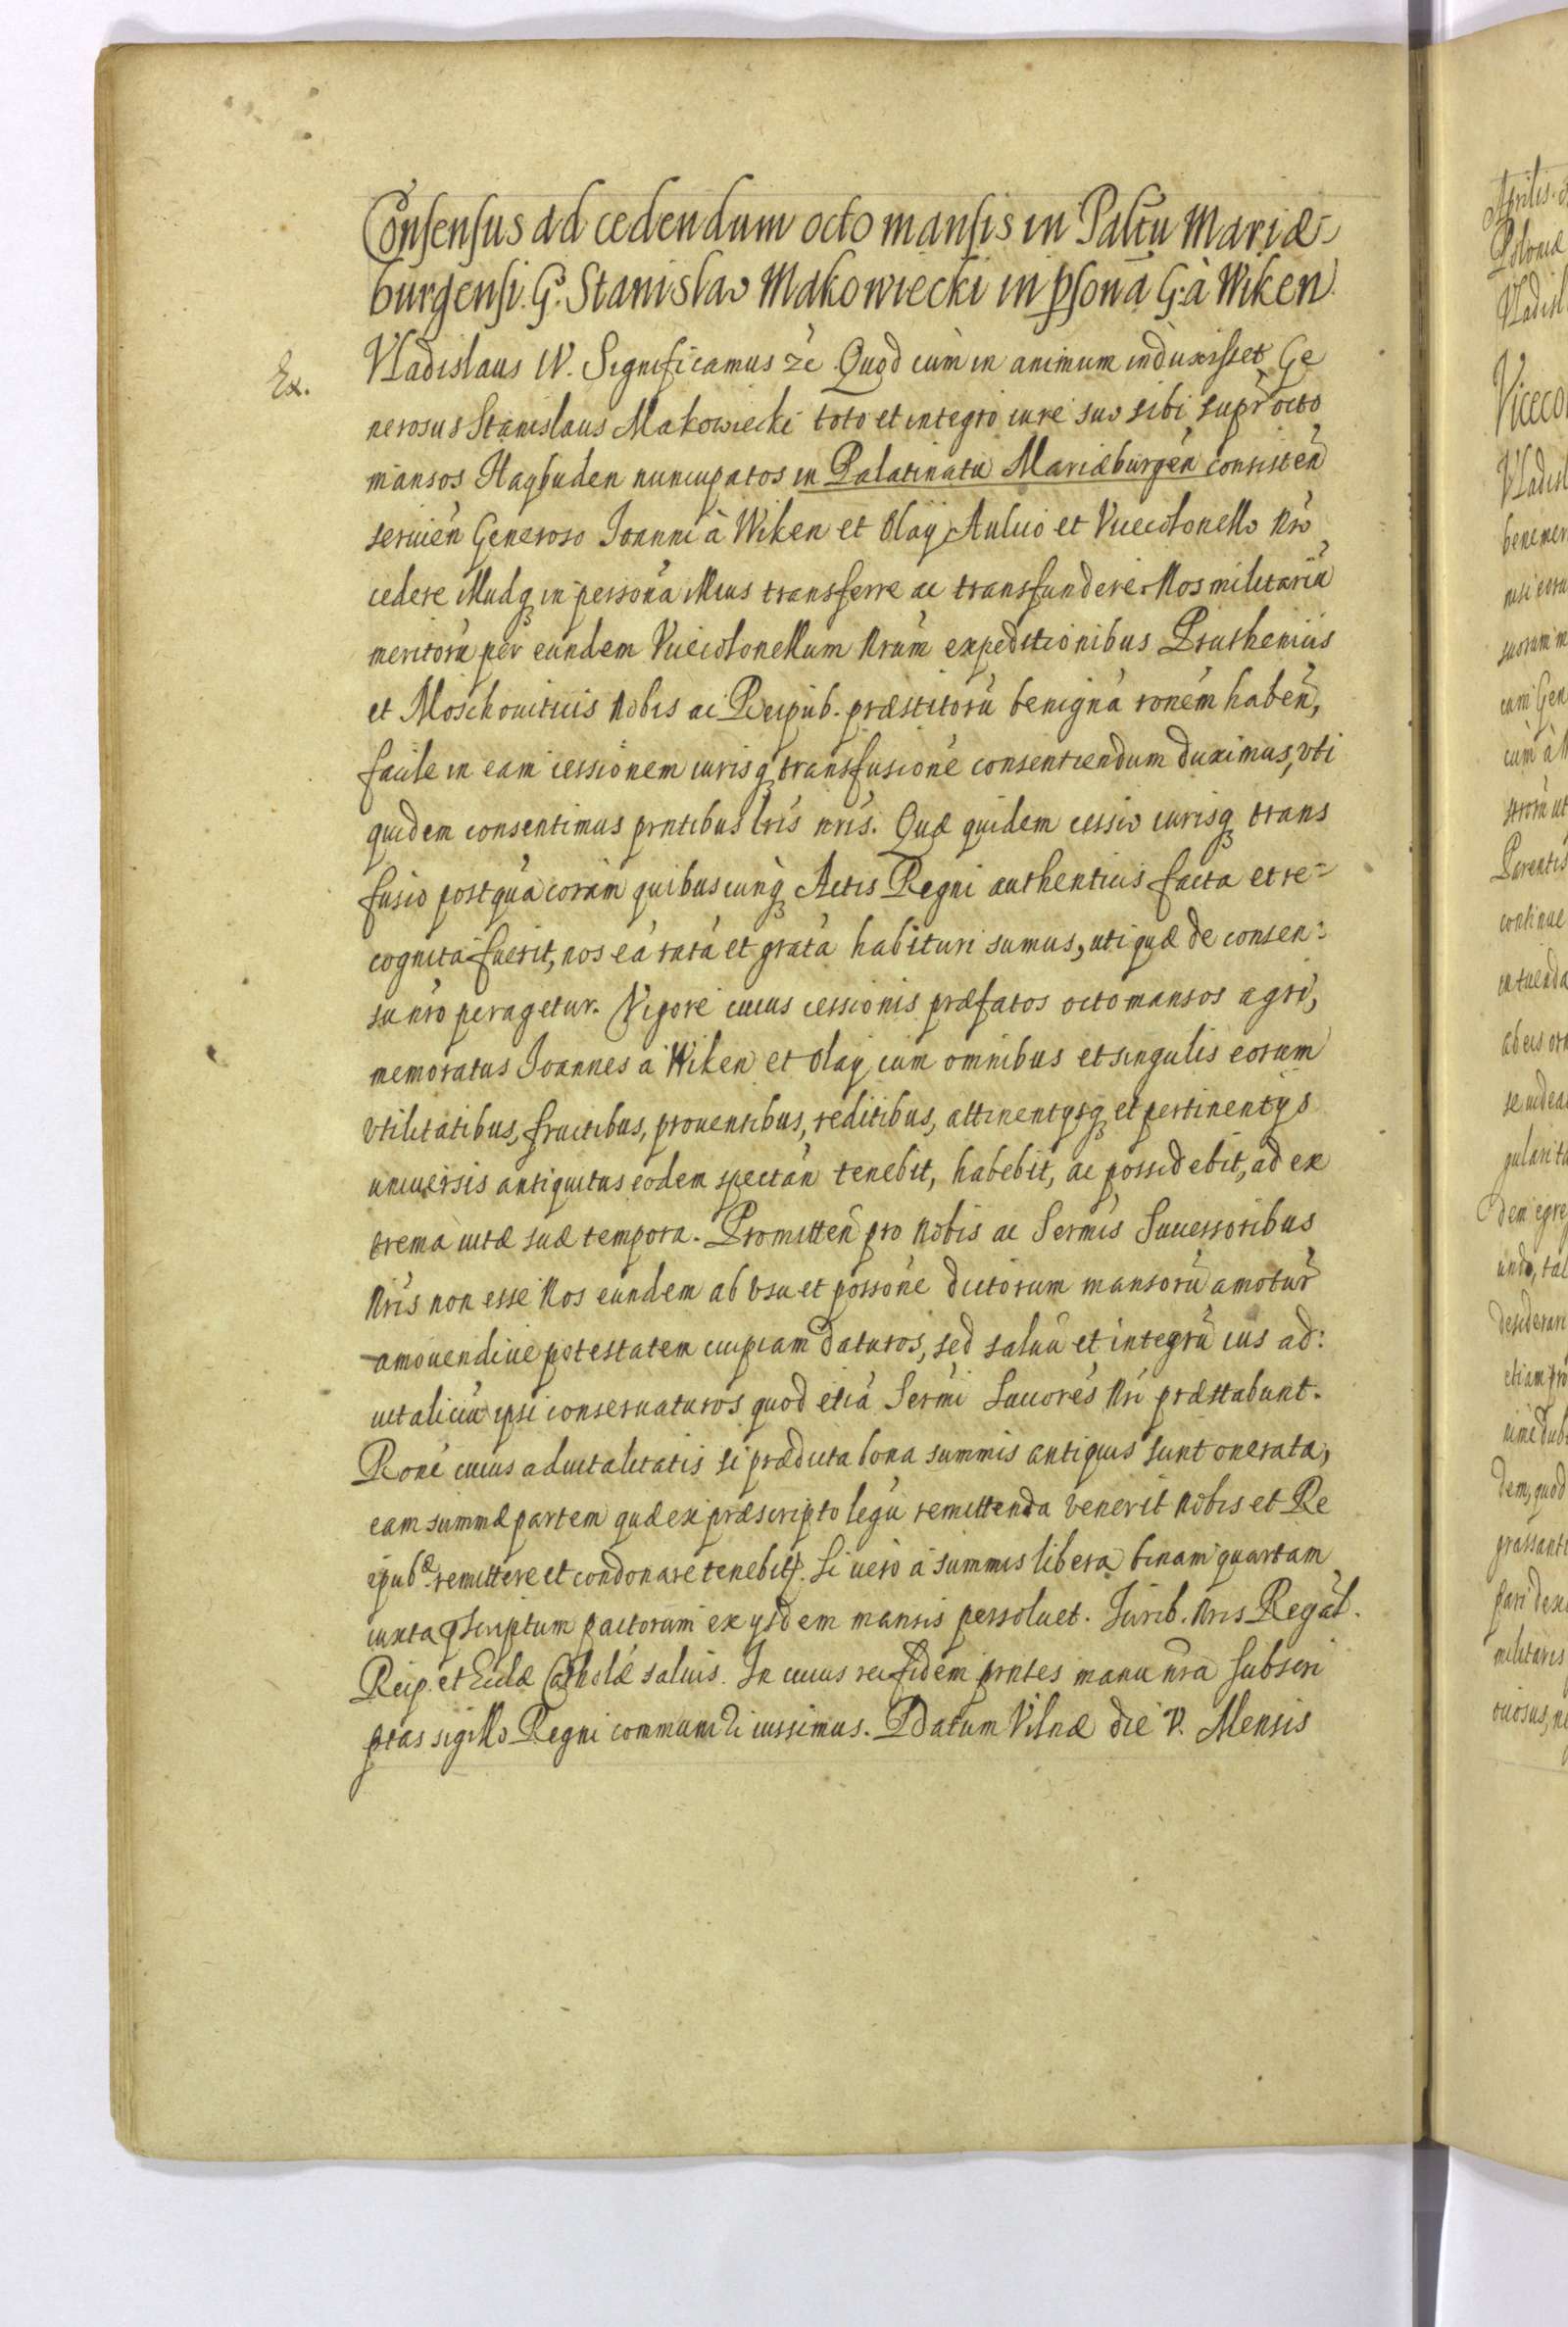 Consensus ad cedendum octo mansis in Paltu Mariæ-
burgensi. G. Stanislao Makowiecki in psona G. à Wiken
Ex.
Vladislaus IV. Significamus &c. Quod cùm in animum induxisset Ge
nerosus Stanislaus Makowiecki toto et integro iure suo sibi supr octo
mansos Hagbuden nuncupatos in Palatinatu Mariæburgen consisten
seruien Generoso Ioanni à Wiken et Olay Aulico et Vicecolonello nro
cedere illudq in persona illius transferre ac transfundere. Nos militariu
meritoru per eundem Vicecolonellum nrum expeditionibus Pruthenicis
et Moschouiticis nobis ac Reipub. præstitoru benigna ronem haben,
facile in eam cessionem iurisq transfusione consentiendum duximus, vti
quidem consentimus prntibus lris nris. Quæ quidem cessio iurisq trans
fusio postqua coram quibuscunq Actis Regni authenticis facta et re=
cognita fuerit, nos ea rata et grata habituri sumus, uti quæ de consen:
su nro peragetur. Vigore cuius cessionis præfatos octo mansos agri,
memoratus Ioannes à Wiken et Olay cum omnibus et singulis eorum
vtilitatibus, fructibus, prouentibus, reditibus, attinentysq et pertinentys
uniuersis antiquitus eodem spectan tenebit, habebit, ac possidebit, ad ex
trema vitæ suæ tempora. Promitten pro nobis ac Sermis Successoribus
nris non esse nos eundem ab vsu et possone dictorum mansoru amotur
amouendiue potestatem cuipiam daturos, sed saluu et integru ius ad:
uitaliciu ipsi conseruaturos quod etia Sermi Succores nri præstabunt.
Rone cuius aduitalitatis si prædicta bona summis antiquis sunt onerata,
eam summæ partem quæ ex præscripto legu remittenda venerit nobis et Re
ipubæ remittere et condonare tenebitr. Si uero à summis libera binam quartam
iuxta pscriptum pactorum ex ysdem mansis persoluet. Iurib. nris Regal.
Reip. et Ecclæ Catholæ saluis. In cuius rei fidem prntes manu nra subscri
ptas sigillo Regni communiri iussimus. Datum Vilnæ die V. Mensis